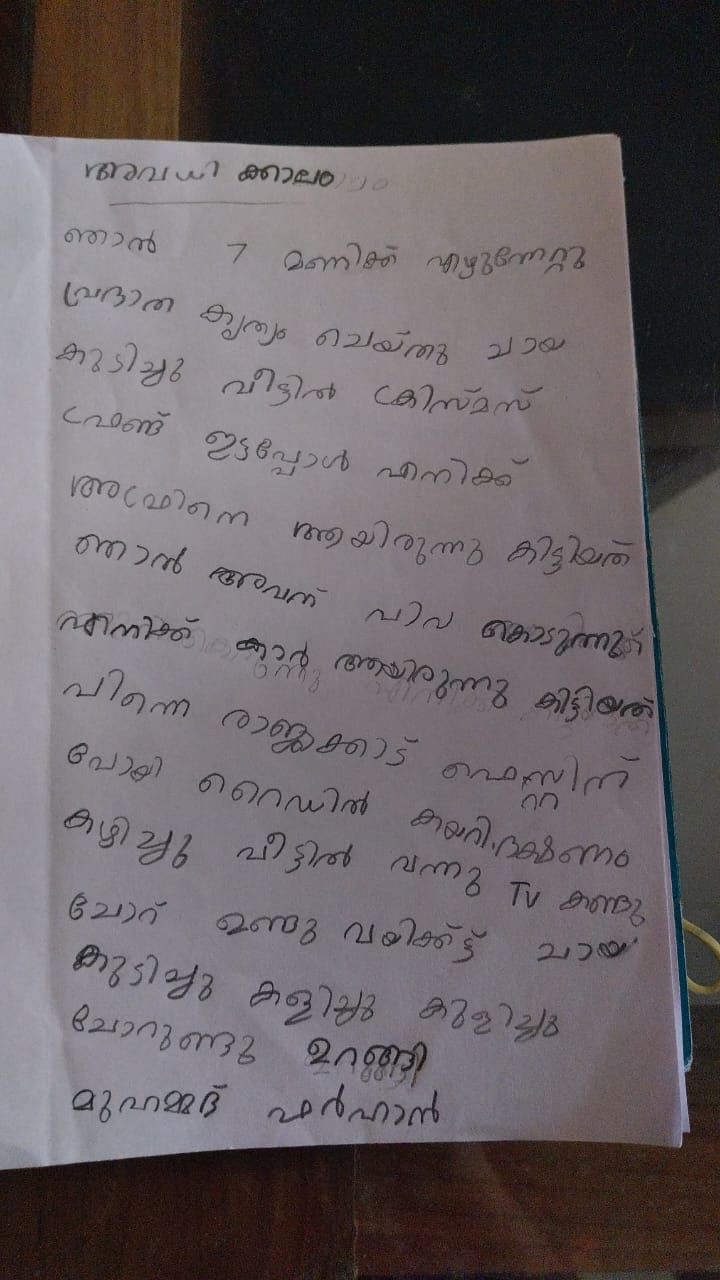 അവധി ക്കാലം
ഞാൻ 7 മണിക്ക് എഴുന്നേറ്റു
പ്രഭാത കൃത്യം ചെയ്തു ചായ
കുടിച്ചു വീട്ടിൽ ക്രിസ്മസ്
ഫ്രണ്ട് ഇട്ടപ്പോൾ എനിക്ക്
അഫ്രിനെ ആയിരുന്നു കിട്ടിയത്
ഞാൻ അവന് പാവ കൊടുത്തു
എനിക്ക് കാർ ആയിരുന്നു കിട്ടിയത്
പിന്നെ രാജാക്കാട് ഫെസ്റ്റിന്
പോയി റൈഡിൽ കയറി, ഭക്ഷണം
കഴിച്ചു വീട്ടിൽ വന്നു TV കണ്ടു
ചോറ് ഉണ്ടു വയിക്കിട്ട് ചായ
കുടിച്ചു കളിച്ചു കുളിച്ചു
ചോറുണ്ടു ഉറങ്ങി
മുഹമ്മദ് ഫർഹാൻ